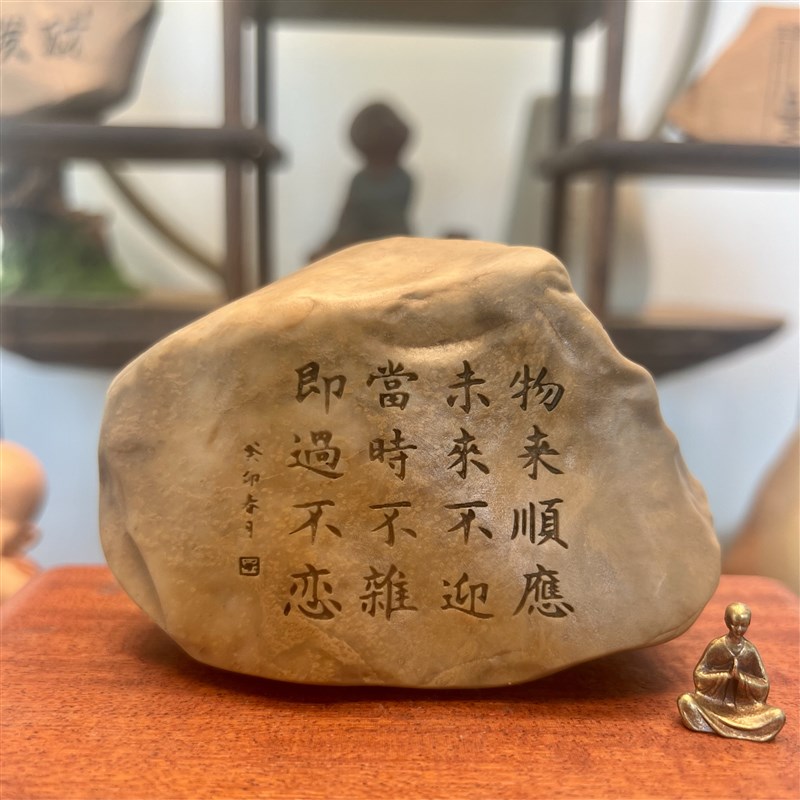 物来順應
未來不迎
當時不雜
即過不恋
癸卯春月